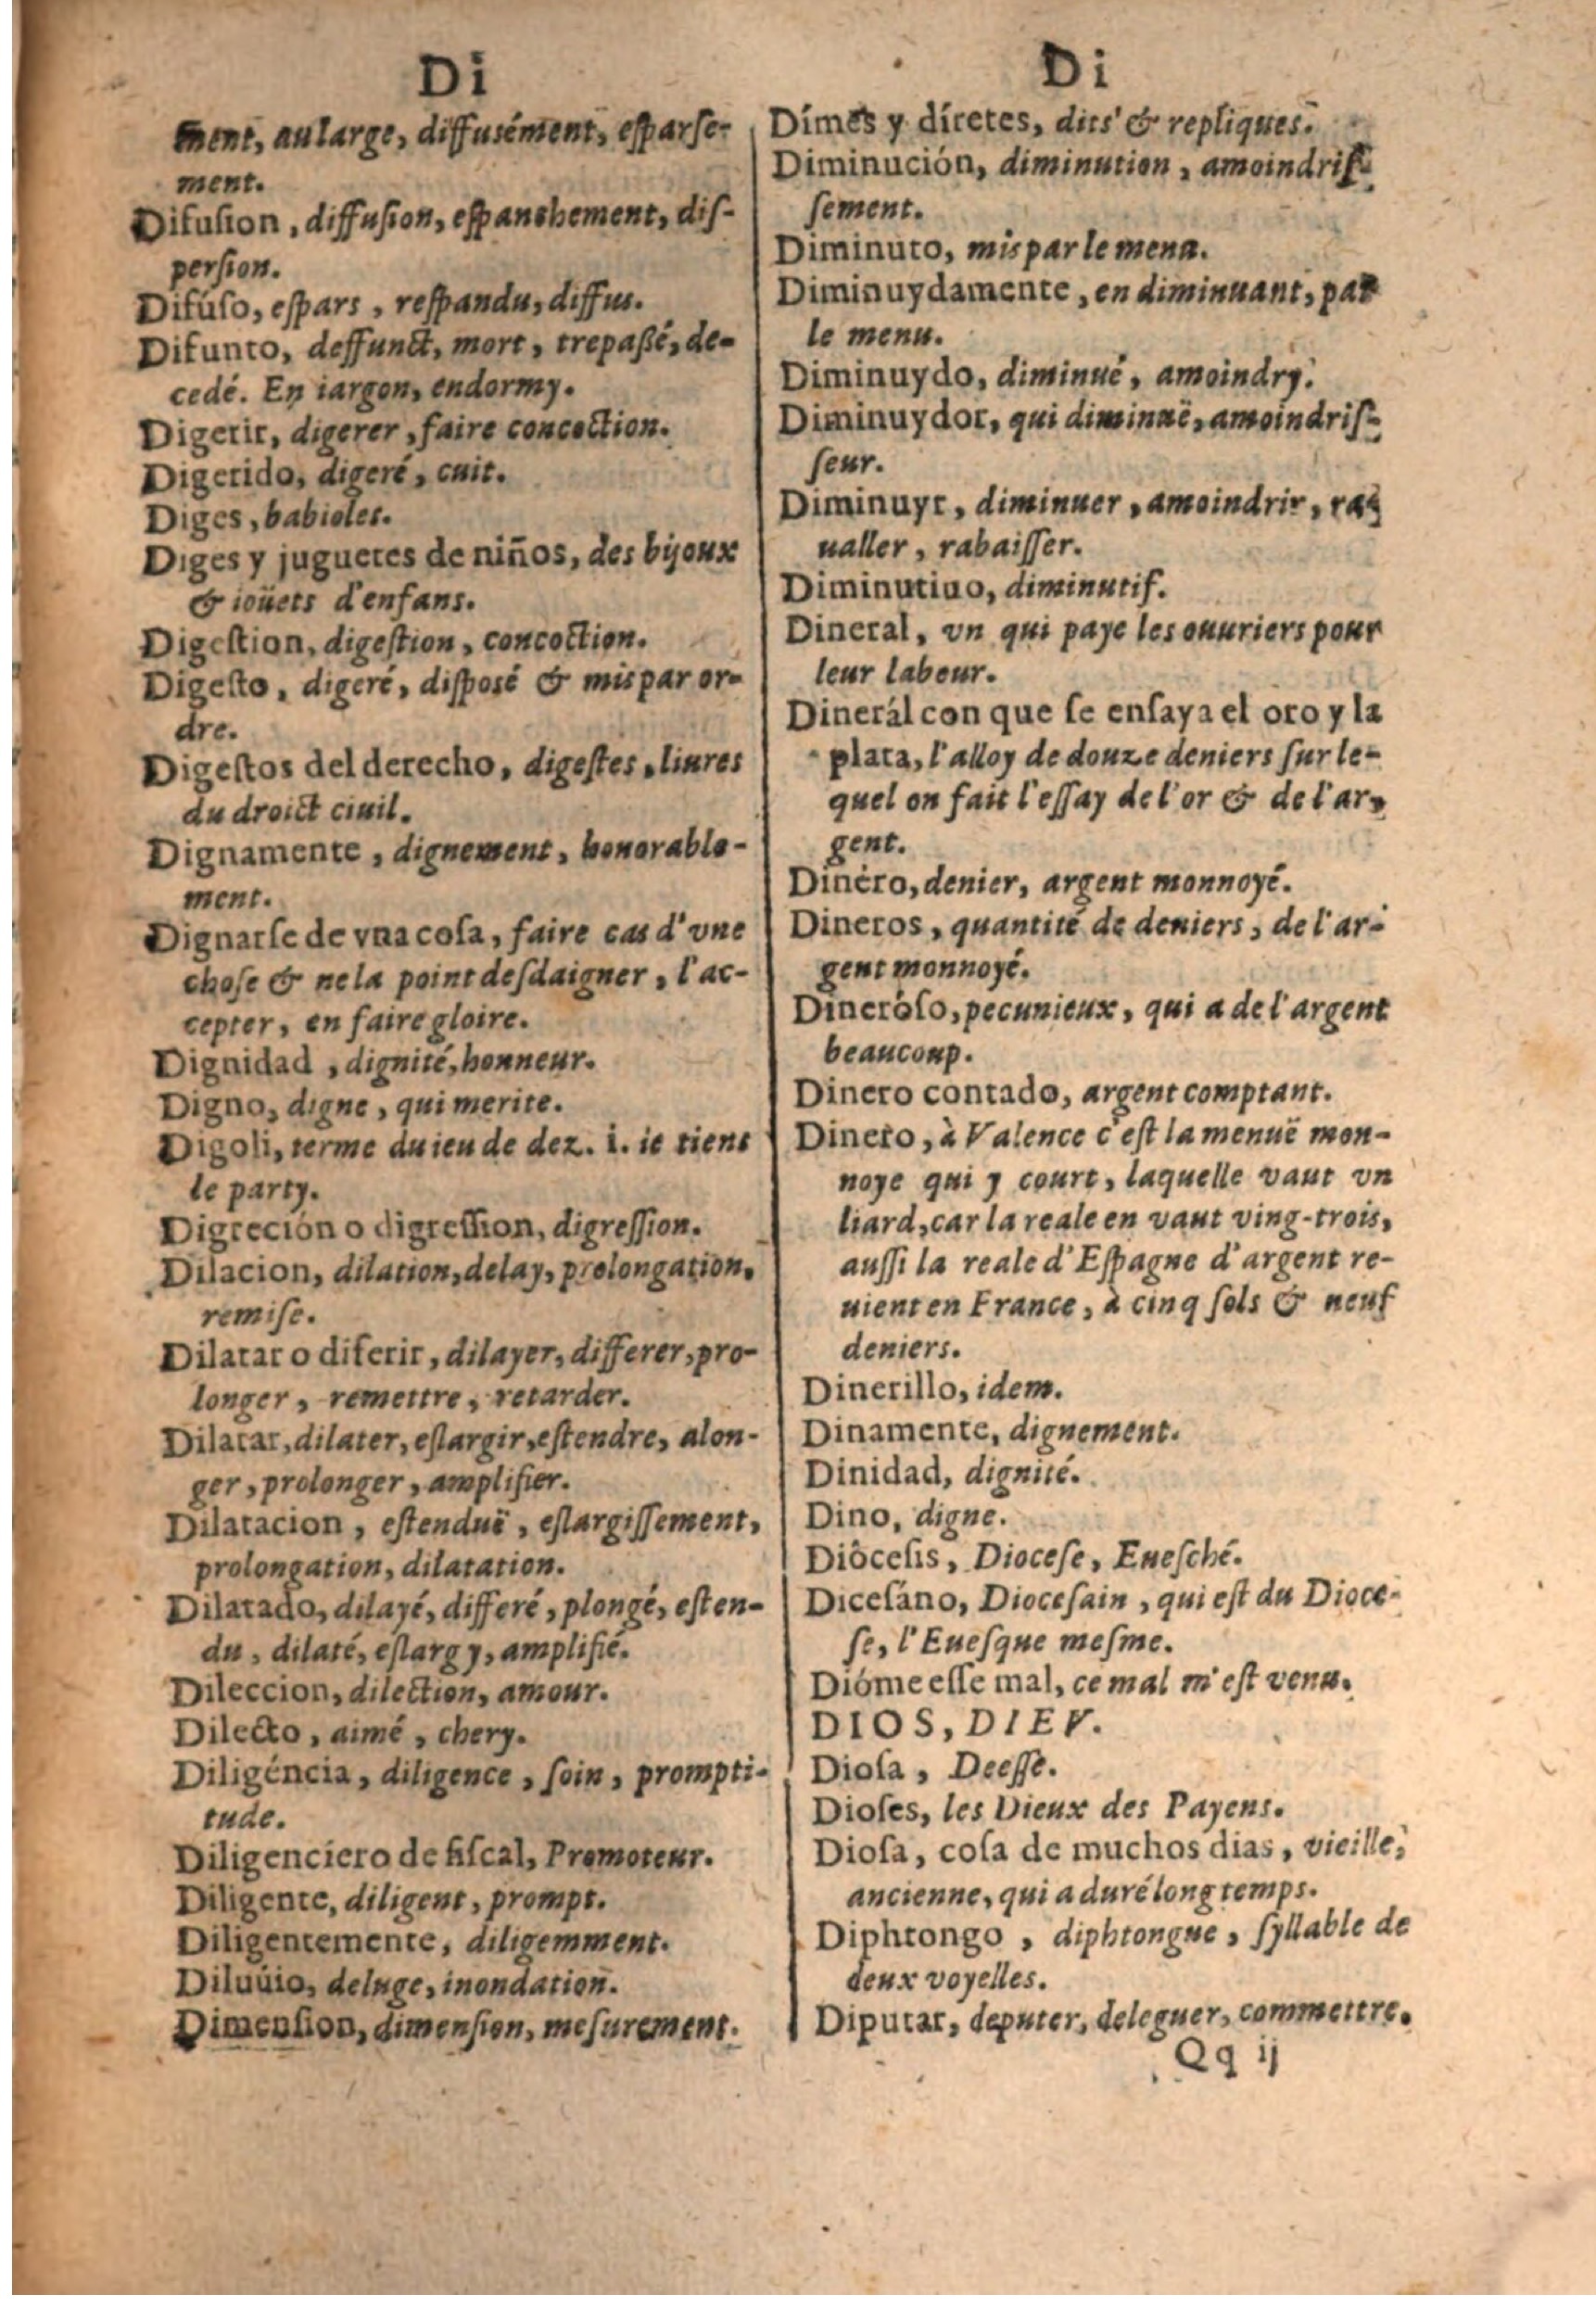 Di
ment, au large, diffusément, esparſe-
ment.
Difuſion, diffuſion, eſpanchement, diſ-
perſion.
Difúſo, eſpars, reſpandu, diffus.
Difunto, deffunct, mort, trepaßé, de-
cedé. En iargon, endormy.
Digerir, digerer, faire concoction.
Digerido, digeré, cuit.
Diges, babioles.
Diges y juguetes de niños, des bijoux
& ioüets d'enfans.
Digeſtion, digeſtion, concoction.
Digeſto, digeré, diſposé & mis par or-
dre.
Digeſtos del derecho, digeſtes, liures
du droict ciuil.
Dignamente, dignement, honorable-
ment.
Dignarſe de vna coſa, faire cas d'vne
choſe & ne la point deſdaigner, l'ac-
cepter, en faire gloire.
Dignidad, dignité, honneur.
Digno, digne, qui merite.
Digoli, terme du ieu de dez. i. ie tiens
le party.
Digreción o digreſſion, digreſſion.
Dilacion, dilation, delay, prolongation,
remiſe.
Dilatar o diferir, dilayer, differer, pro-
longer, remettre, retarder.
Dilatar, dilater, eſlargir, eſtendre, alon-
ger, prolonger, amplifier.
Dilatacion, eſtenduë, eſlargiſſement,
prolongation, dilatation.
Dilatado, dilayé, differé, plongé, eſten-
du, dilaté, eſlargy, amplifié.
Dileccion, dilection, amour.
Dilecto, aimé, chery.
Diligéncia, diligence, ſoin, prompti-
tude.
Diligenciero de fiſcal, Promoteur.
Diligente, diligent, prompt.
Diligentemente, diligemment.
Diluúio, deluge, inondation.
Dimenſion, dimenſion, meſurement.
Di
Dímes y díretes, dits & repliques.
Diminución, diminution, amoindriſ-
ſement.
Diminuto, mis par le menu.
Diminuydamente, en diminuant, par
le menu.
Diminuydo, diminué, amoindry.
Diminuydor, qui diminuë, amoindriſ-
ſeur.
Diminuyr, diminuer, amoindrir, ra-
ualler, rabaiſſer.
Diminutiuo, diminutif.
Dineral, vn qui paye les ouuriers pour
leur labeur.
Dinerál con que ſe enſaya el oro y la
plata, l'alloy de douze deniers ſur le-
quel on fait l'eſſay de l'or & de l'ar-
gent.
Dinéro, denier, argent monnoyé.
Dineros, quantité de deniers, de l'ar-
gent monnoyé.
Dineróſo, pecunieux, qui a de l'argent
beaucoup.
Dinero contado, argent comptant.
Dinero, à Valence c'eſt la menuë mon-
noye qui y court, laquelle vaut vn
liard, car la reale en vaut ving-trois,
auſſi la reale d'Eſpagne d'argent re-
uient en France, à cinq ſols & neuf
deniers.
Dinerillo, idem.
Dinamente, dignement.
Dinidad, dignité.
Dino, digne.
Diôceſis, Dioceſe, Eueſché.
Diceſáno, Dioceſain, qui eſt du Dioce-
ſe, l'Eueſque meſme.
Dióme eſſe mal, ce mal m'eſt venu.
DIOS, DIEV.
Dioſa, Deeſſe.
Dioſes, les Dieux des Payens.
Dioſa, coſa de muchos dias, vieille,
ancienne, qui a duré long temps.
Diphtongo, diphtongue, ſyllable de
deux voyelles.
Diputar, deputer, deleguer, commettre.
Qq ij